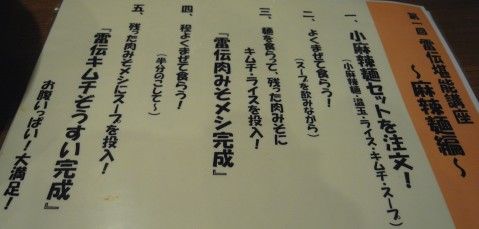 第一回 雷伝堪能講座
～麻辣麺編～
一、小麻辣麺セットを注文！
(小麻辣麺・温玉・ライス・キムチ・スープ)
二、よくまぜて食らう！
(スープを飲みながら)
三、麺を食らって、残った肉みそに
キムチ・ライスを投入！
『雷伝肉みそメシ完成』
四、程よくまぜて食らう！
(半分のこして～)
五、残った肉みそメシにスープを投入！
『雷伝キムチぞうすい完成』
お腹いっぱい！大満足！